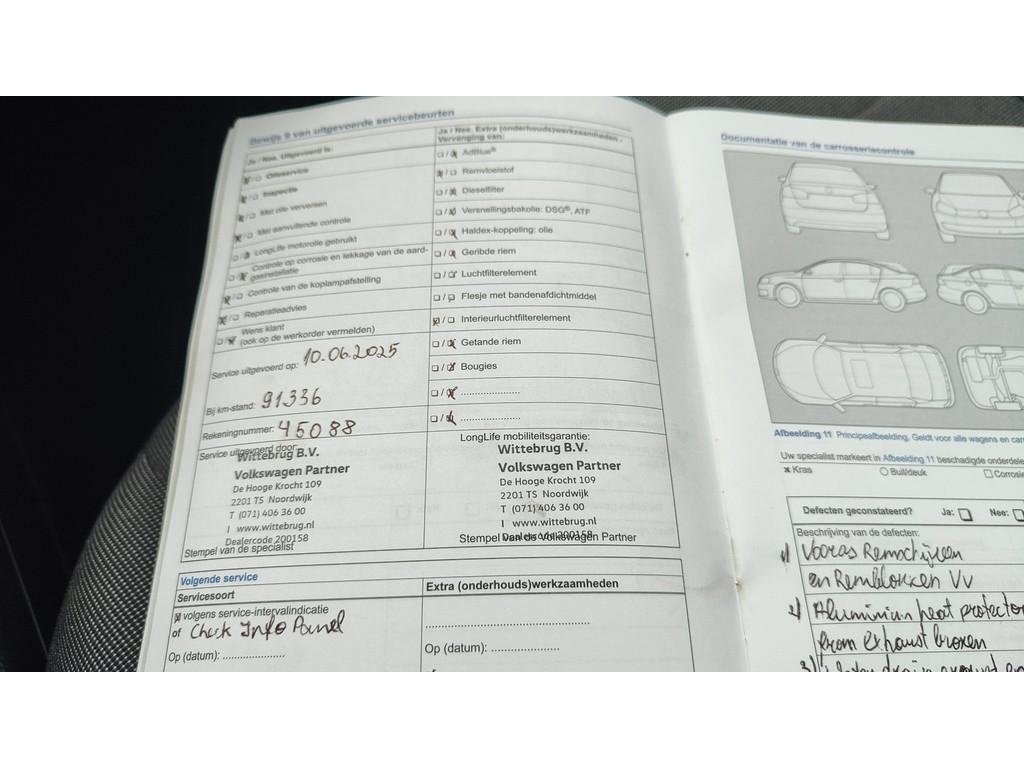 Bewijs 9 van uitgevoerde servicebeurten
Ja / Nee. Uitgevoerd is:
Olieservice
Inspectie
Met olie verversen
Met aanvullende controle
LongLife motorolie gebruikt
Controle op corrosie en lekkage van de aard-
gasinstallatie
Controle van de koplampafstelling
Reparatieadvies
Wens klant
(ook op de werkorder vermelden)
Service uitgevoerd op: 10.06.2025
Bij km-stand: 91336
Rekeningnummer: 45088
Service uitgevoerd door:
Wittebrug B.V.
Volkswagen Partner
De Hooge Krocht 109
2201 TS Noordwijk
T (071) 406 36 00
I www.wittebrug.nl
Dealercode 200158
Stempel van de specialist
Ja / Nee. Extra (onderhouds)werkzaamheden -
Vervanging van:
AdBlue®
Remvloeistof
Dieselfilter
Versnellingsbakolie: DSG®, ATF
Haldex-koppeling: olie
Geribde riem
Luchtfilterelement
Flesje met bandenafdichtmiddel
Interieurluchtfilterelement
Getande riem
Bougies
LongLife mobiliteitsgarantie:
Wittebrug B.V.
Volkswagen Partner
De Hooge Krocht 109
2201 TS Noordwijk
T (071) 406 36 00
I www.wittebrug.nl
Dealercode 200158
Stempel van de Volkswagen Partner
Volgende service
Servicesoort
volgens service-intervalindicatie
of Check Info Panel
Op (datum): ....................
Extra (onderhouds)werkzaamheden
Op (datum): ....................
Documentatie van de carrosseriecontrole
Afbeelding 11 Principeafbeelding. Geldt voor alle wagens en
Uw specialist markeert in Afbeelding 11 beschadigde
Kras
Buil/deuk
Defecten geconstateerd? Ja: Nee:
Beschrijving van de defecten:
1) Vooras Remschijven
en Remblokken VV
2) Aluminium heat protector
from exhaust broken
3)